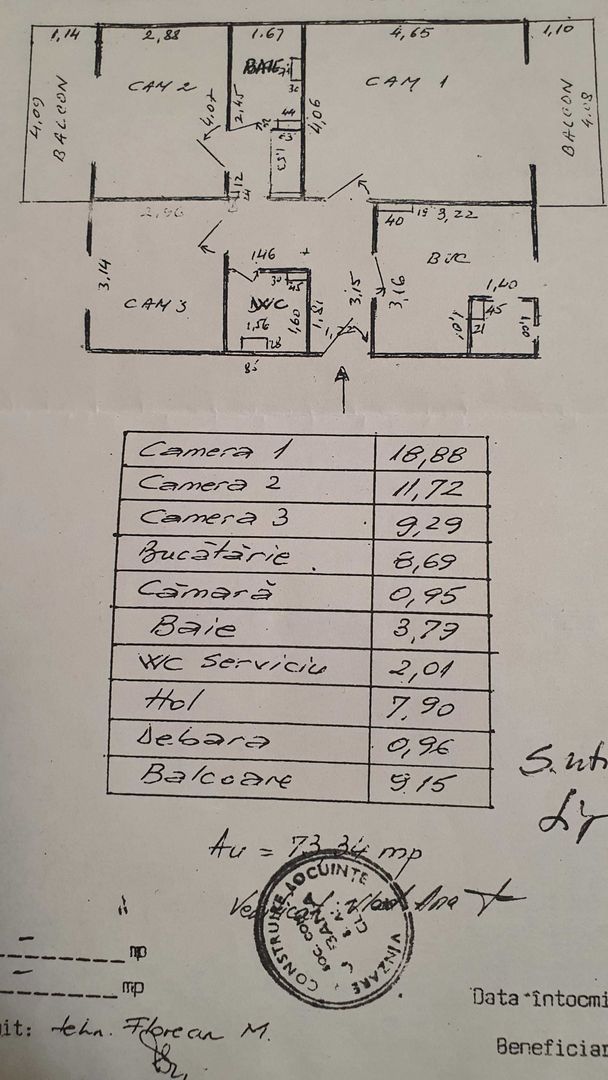 1,14 2,88 1.67 4,65 1,10
BAIE
CAM 2 CAM 1
4,09 BALCON 4,07 2,45 4,06 BALCON 4.08
44
12
2,96 40 19 3,22
146 BUC
3,14 30 45 3,15 3,16 1,40
CAM 3 WC 45
1,56 1,60 1,81 1,01 21 1,00
28
Camera 1 18,88
Camera 2 11,72
Camera 3 9,29
Bucătărie 8,69
Cămară 0,95
Baie 3,79
WC Serviciu 2,01
Hol 7,90
Debara 0,96
Balcoare 9,15
Au = 73,34 mp
CONSTRUIRE LOCUINTE
VÎNZARE
mp
mp
Data întocmi
it: tehn. Florean M.
Beneficiar